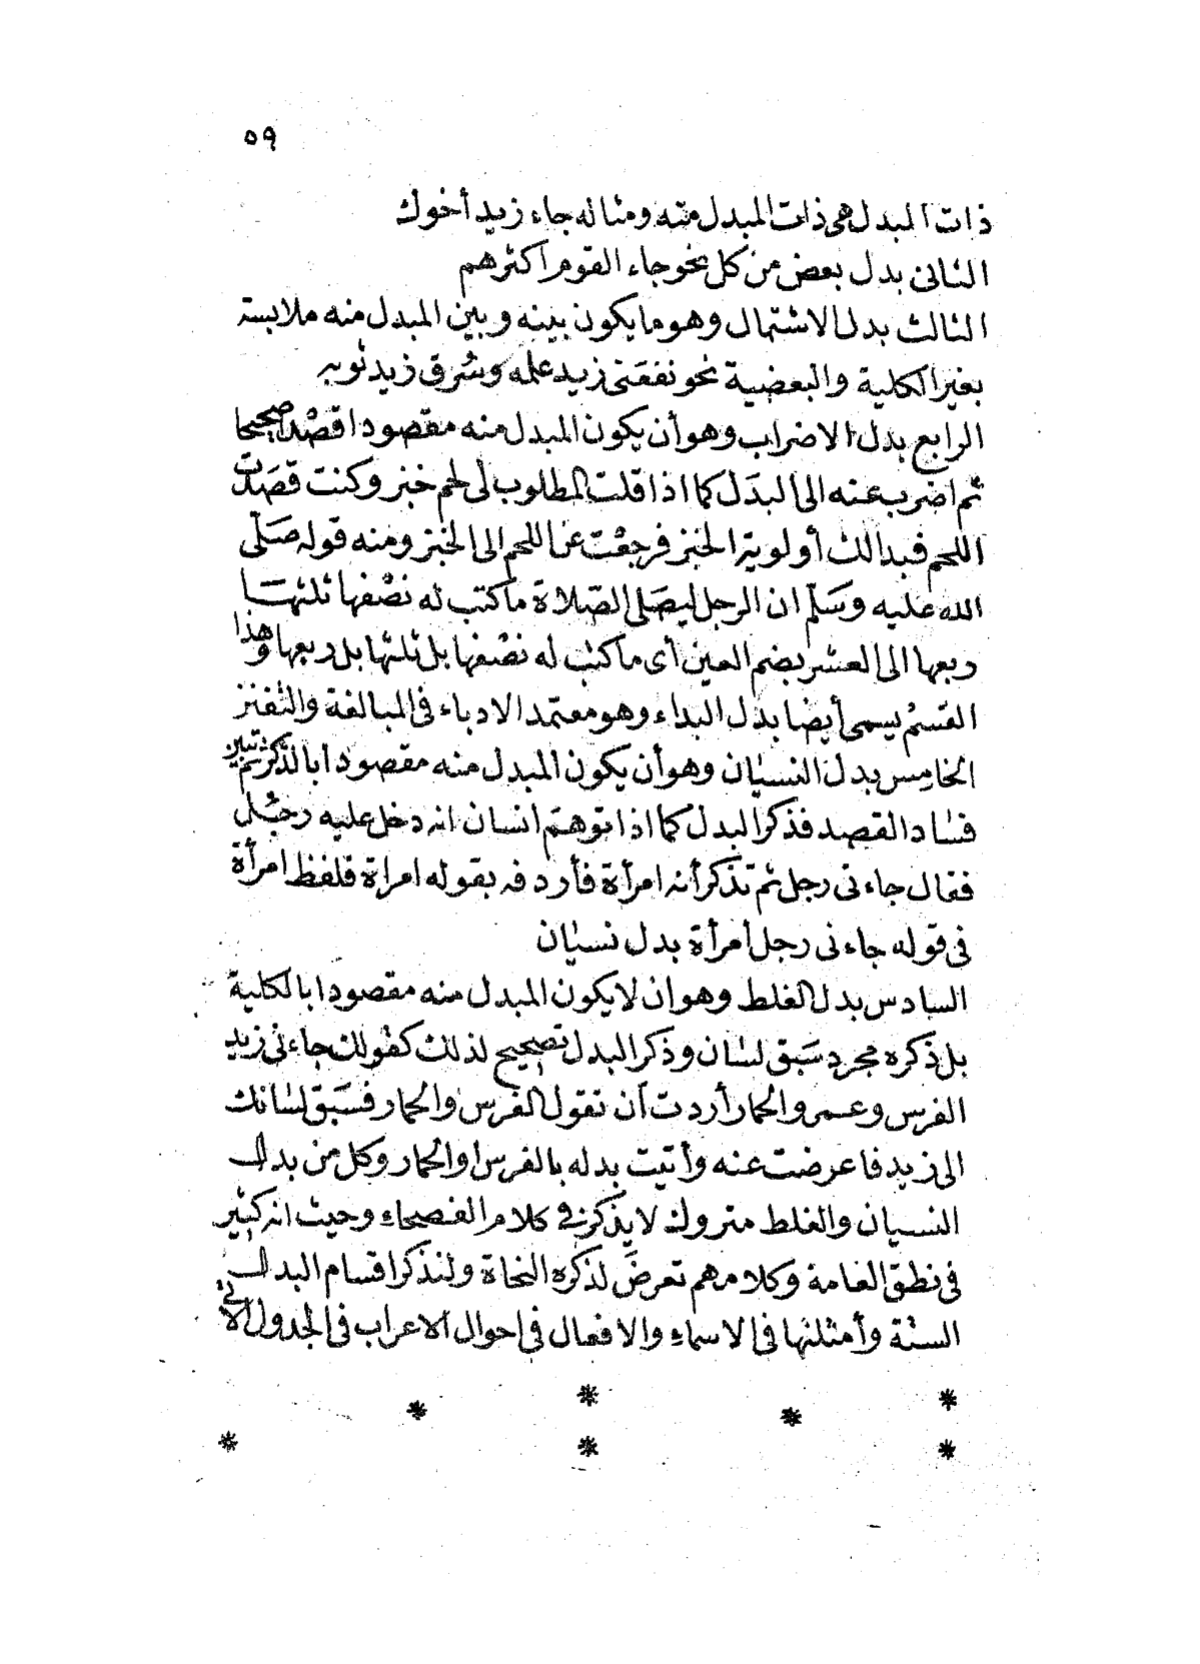 ٥٩
ذات المبدل هى ذات المبدل منه ومثاله جاء زيد أخوك
الثانى بدل بعض من كل نحو جاء القوم اكثرهم
الثالث بدل الاشتمال وهو ما يكون بينه وبين المبدل منه ملابسة
بغير الكلية والبعضية نحو نفعنى زيد علمه وسُرق زيد ثوبه
الرابع بدل الاضراب وهو أن يكون المبدل منه مقصودا قصْدا صحيحا
ثم اضرب عنه الى البدَل كما اذا قلت المطلوب لى لحم خبز وكنت قصَدت
اللحم فبدالك أولوية الخبز فرجعْت عن اللحم الى الخبز ومنه قوله صَلّى
الله عليه وسَلّم ان الرجل ليصَلى الصّلاة ما كتب له نصْفها ثلثها
ربعها الى العشر بضم العين أى ما كتب له نصْفها بل ثلثها بل ربعها وهذا
القسْم يسمى أيضا بدل البداء وهو معتمد الادباء فى المبالغة والتفنن
الخامِس بدل النسيان وهو أن يكون المبدل منه مقصودا بالذكر ثم تبين
فسَاد القصد فذكر البدل كما اذا توهم انسان انه دخل عليه رجُل
فقال جاءنى رجل ثم تذكر أنه امرأة فأردفه بقوله امراة فلفظ امرأة
فى قوله جاءنى رجل أمرأة بدل نسيان
السادس بدل الغلط وهو ان لا يكون المبدل منه مقصودا بالكلية
بل ذكره مجرد سَبق لسَان وذكر البدل تصحيح لذلك كقولك جاءنى زيد
الفرس وعمرو الحمار أردت أن تقول الفرس والحمار فسَبق لسَانك
الى زيد فاعرضت عنه وأتيت بدله بالفرس او الحمار وكل من بدل
النسيان والغلط متروك لا يذكر فى كلام الفصحاء وحيث انه كثير
فى نطق العامة وكلامهم تعرضَ لذكره النحاة ولنذكر اقسام البدل
الستة وأمثلتها فى الاسماء والافعال فى احوال الاعراب فى الجدول الآتى